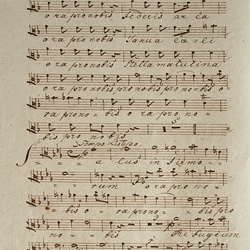 ora pro nobis Federis arca
ora pro nobis Janua caeli
ora pro nobis Stella matutina
ora pro nobis ora pro nobis pro nobis o
ra pro no = bis ora pro no =
bis pro nobis
Salus in firmo =
rum ora pro no =
bis ora pro no = bis pro
no = bis Refugium